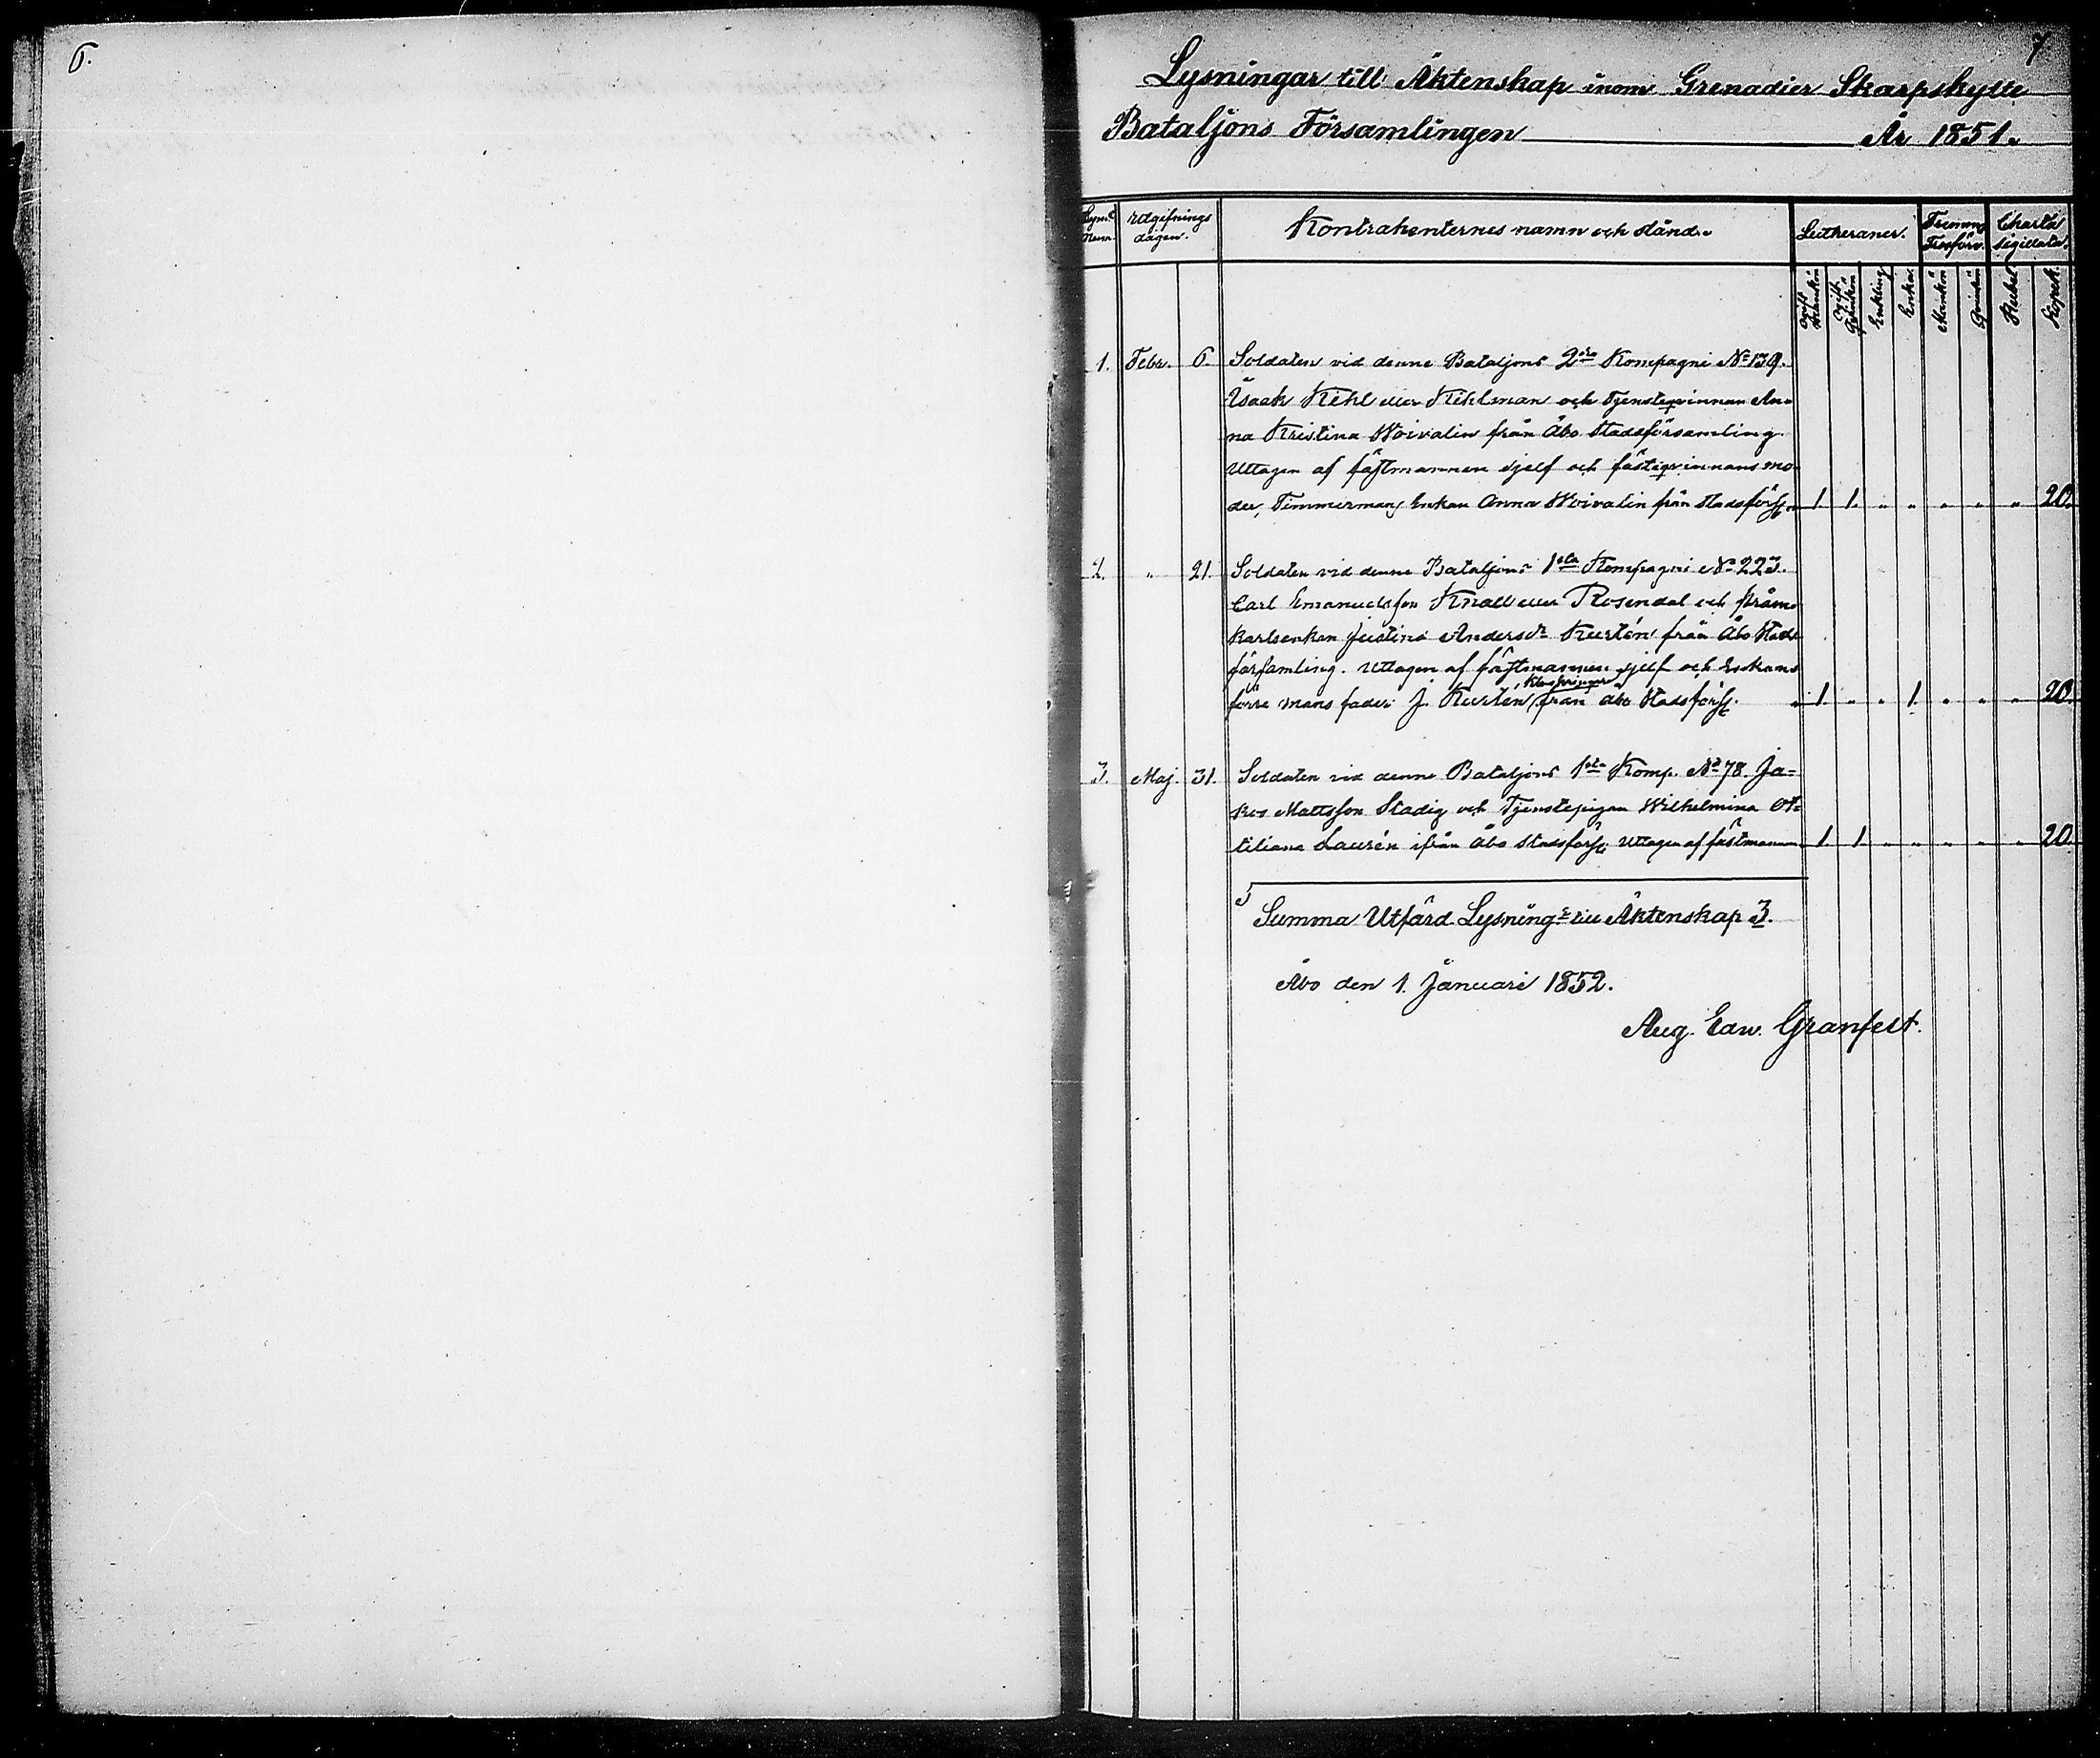 6.
7
Lysningar till Äktenskap inom Grenadier Skarpskytte
Bataljons Församlingen År 1851.
Utgifnings
dagen.
Kontrahenternes namn och stånd.
Lutheraner.
Främm.
Trosförv.
Charta
Sigillata.
Ogift
Mankön
Ogift
Qvinkön
Enkling
Enka
Mankön
Qvinkön
Rubel
Kopek.
1. Febr. 6. Soldaten vid denne Bataljons 2dra Kompagni No 139.
Isaak Kihl eller Kihlman och Tjensteqvinnan An-
na Kristina Woivalin från Åbo Stadsförsamling.
Uttagen af fästmannen sjelf och fästeqvinnans mo-
der, Timmermans Enkan Anna Woivalin från Stadsförs. 1. 1. " " " " " 20.
2. " 21. Soldaten vid denne Bataljons 1sta Kompagni No 223.
Carl Emanuelsson Knall eller Rosendal och pråm-
karlsenkan Justina Andersdr Kurtén från Åbo Stads
församling. Uttagen af fästmannen sjelf och Enkans
förre mans fader J. Kurtén, från Åbo Stadsförs. " 1. " " 1. " " " 20.
3. Maj. 31. Soldaten vid denne Bataljons 1sta Komp. No 78. Ja-
kob Mattsson Stadig och Tjenstepigan Wilhelmina Ot-
tiliana Laurén ifrån Åbo Stadsförs. Uttagen af fästmannen 1. 1. " " " " " 20.
Summa Utfärd. Lysning:r till Äktenskap 3.
Åbo den 1. Januari 1852.
Aug. Edw. Granfelt.